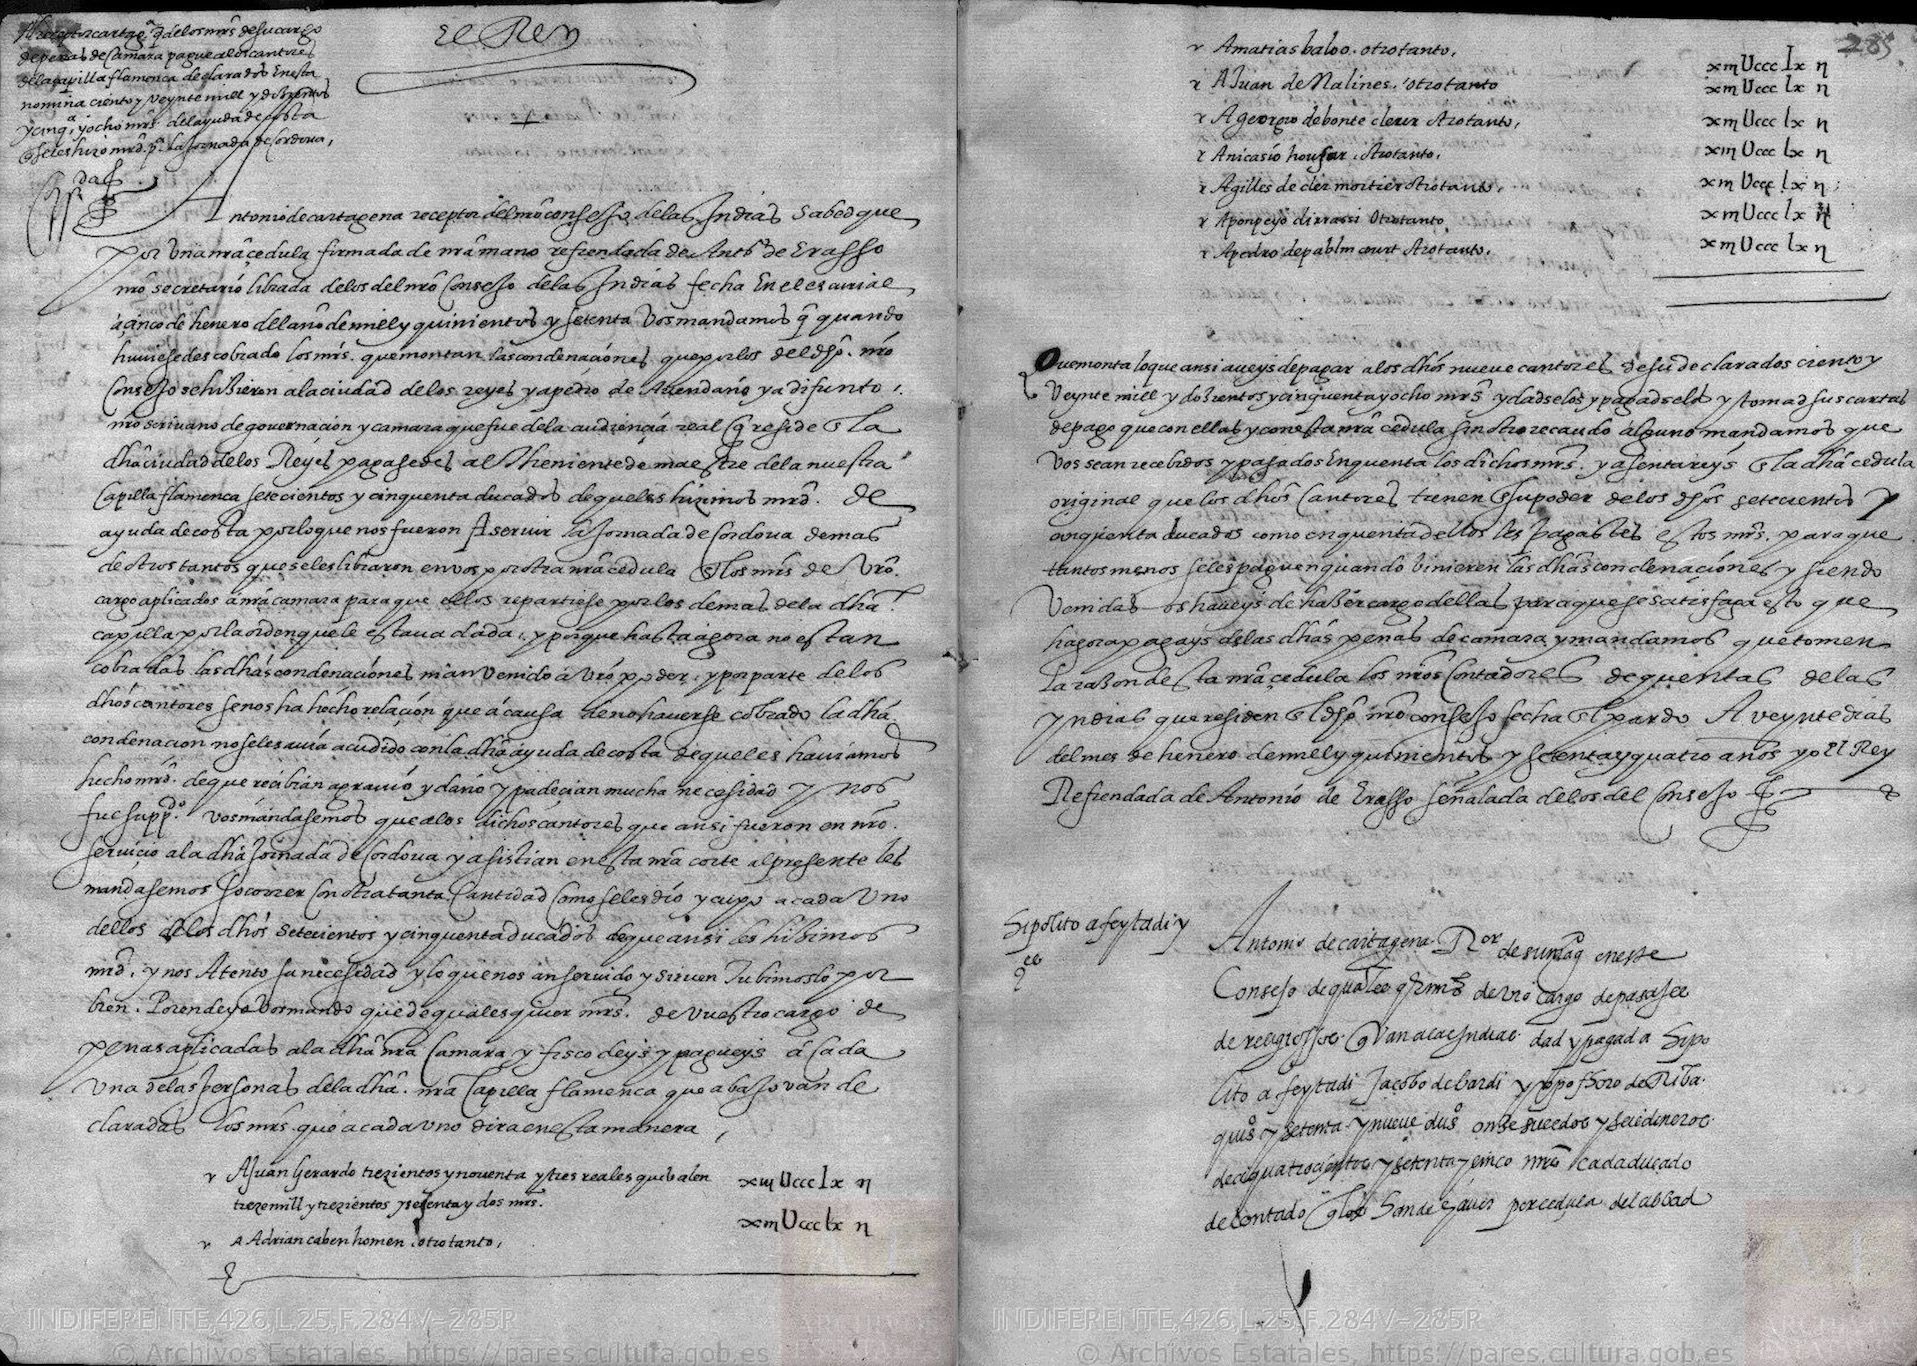 Al receptor cartagª q̄ de los mrs̄ de su cargo
de penas de camara pague a los cantores
de la capilla flamenca declarados en esta
nomina ciento y veynte mill y dozientos
y cinqᵗᵃ y ocho mrs̄ del ayuda de costa
q̄ se les hizo mrd̄. pª. la Jornada de cordova,
El Rey
Antonio de cartagena receptor del nrō consejo de las Indias sabed que
por una nrā çedula firmada de nrā mano refrendada de Antº de Erasso
nrō secretario librada de los del nrō Consejo de las Indias fecha en el escurial
a çinco de henero del año de mill y quinientos y setenta vos mandamos q̄ quando
huviesedes cobrado los mrs̄. que montan las condenaciones que por los del dhō. nrō
Consejo se hizieron a la ciudad de los reyes y a pedro de Avendaño ya difunto,
nrō scrivano de governacion y camara que fue de la audiençia real q̄ reside en la
dhā ciudad de los Reyes pagasedes al theniente de maestre de la nuestra
Capilla flamenca setecientos y cinquenta ducados de que les hizimos mrd̄. de
ayuda de costa por lo que nos fueron A servir la jornada de Cordova demas
de otros tantos que se les libraron en vos por otra nrā cedula en los mrs̄ de vrō.
cargo aplicados a nrā camara para que dellos repartiese por los demas de la dhā.
capilla por la orden que le estava dada, y porque hasta agora no estan
cobradas las dhās condenaciones ni an venido a vrō poder, y por parte de los
dhōs cantores se nos ha hecho relaçion que a causa de no haverse cobrado la dhā
condenacion no se les avia acudido con la dhā ayuda de costa de que les haviamos
hecho mrd̄. de que recibian agravio y daño y padecian mucha necesidad y nos
fue suppᵈᵒ. vos mandasemos que a los dichos cantores que ansi fueron en nrō.
serviçio a la dhā jornada de Cordova y asistian en esta nrā corte al presente les
mandasemos socorrer con otra tanta Cantidad como se les dio y cupo a cada uno
dellos de los dhōs setecientos y cinquenta ducados de que ansi les hizimos
mrd̄. y nos Atento su necesidad y lo que nos an servido y sirven tubimoslo por
bien. Por ende yo vos mando que de qualesquier mrs̄. de vuestro cargo de
penas aplicadas a la dhā nrā Camara y fisco deys y pagueys a Cada
una de las personas de la dhā. nrā Capilla flamenca que abaxo van de
claradas los mrs̄. que a cada uno dira en esta manera,
A Juan Gerardo trezientos y noventa y tres reales que valen
treze mill y trezientos y sesenta y dos mrs̄. xiijUccclx ij
A Adrian caben homen. otro tanto, xiijUccclx ij
285
A matias baloo. otro tanto, xiijUccclx ij
A Juan de Malines. otro tanto xiijUccclx ij
A georgio de bonte cleur otro tanto, xiijUccclx ij
A nicasio housar. otro tanto, xiijUccclx ij
A gilles de cler mortier otro tanto, xiijUccclx ij
A ponpeyo di rrassi otro tanto xiijUccclx ij
A pedro de pablm court otro tanto. xiijUccclx ij
Que monta lo que ansi aveys de pagar a los dhōs nueve cantores de su declarados ciento y
Veynte mill y dozientos y cinquenta y ocho mrs̄ y dadselos y pagadselos y tomad sus cartas
de pago que con ellas y con esta nrā cedula sin otro recaudo alguno mandamos que
vos sean recebidos y pasados en quenta los dichos mrs̄. y asentareys en la dhā cedula
original que los dhōs Cantores tienen en su poder de los dhōs setecientos y
cinquenta ducados como en quenta dellos les pagastes estos mrs̄. para que
tantos menos se les paguen quando vinieren las dhās condenaçiones y siendo
Venidas os haveys de hazer cargo dellas para que se satisfaga esto que
hagora pagays de las dhās penas de camara y mandamos que tomen
la razon desta nrā çedula los nrōs Contadores de quentas de las
yndias que residen en el dhō nrō consejo fecha en el pardo A veynte dias
del mes de henero de mill y quinientos y setenta y quatro años yo El Rey
Refrendada de Antonio de Erasso señalada de los del Consejo
Hipolito afeytadi y
cº
Antonio de cartagena Rᵒʳ de su magᵈ en este
Consejo de qualesq̄r mrs̄ de vrō cargo de pasaje
de religiosos q̄ van a las Indias dad y pagad a Hipo
lito afeytadi Jacobo de bardi y
quiºs y setenta y nueve duºs onze sueldos y seis dineros
de a quatrocientos y setenta y cinco mrs̄ cada ducado
de contado q̄ los han de aver por cedula del abbad
INDIFERENTE,426,L.25,F.284V-285R
© Archivos Estatales, https://pares.cultura.gob.es
INDIFERENTE,426,L.25,F.284V-285R
© Archivos Estatales, https://pares.cultura.gob.es